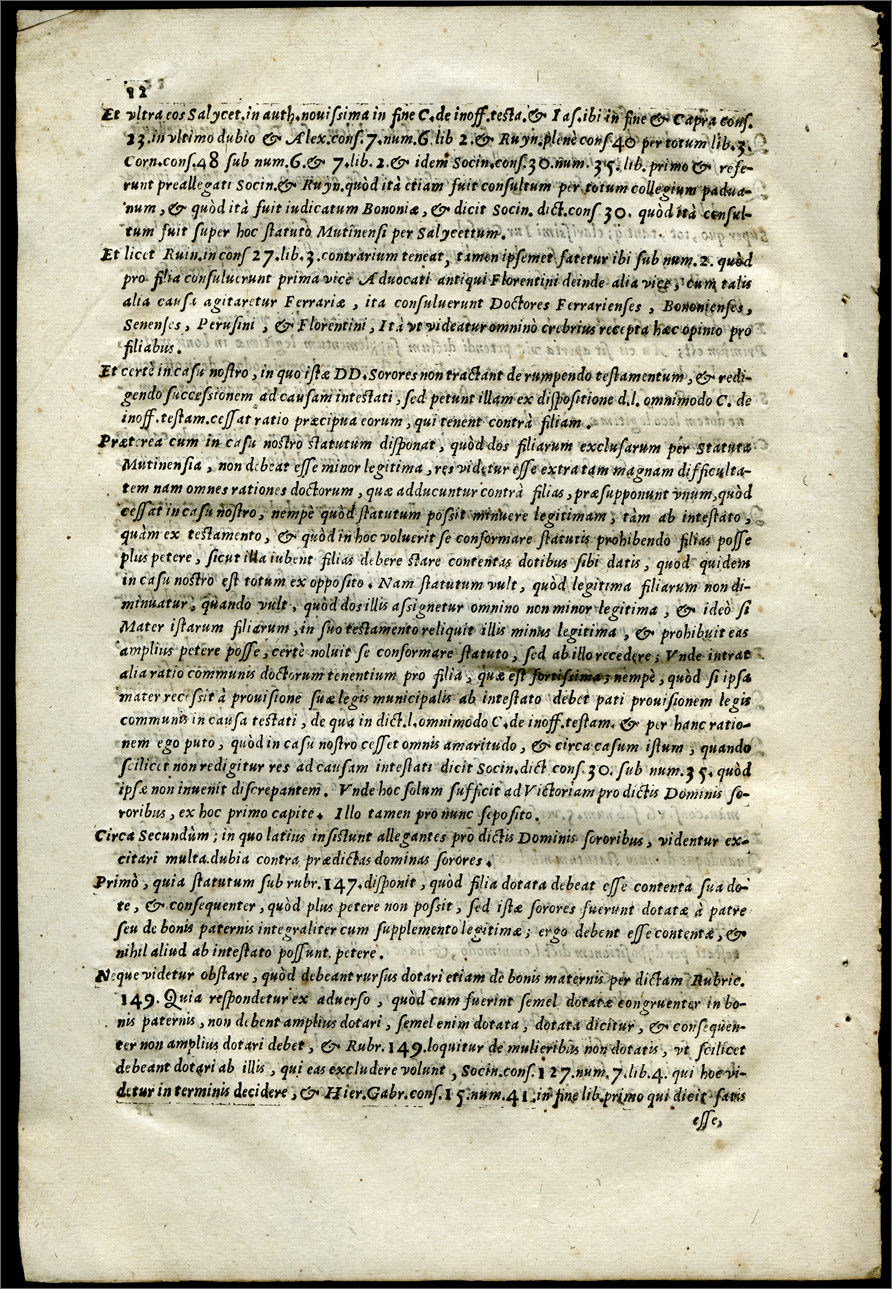 82
Et vltra eos Salycet.in auth.nouissima in fine C.de inoff.testa.& Ias.ibi in fine & Capra cons.
23.in vltimo dubio & Alex.cons.7.num.6.lib 2.& Ruyn.plenè cons 40 per totum lib.3.
Corn.cons.48 sub num.6.& 7.lib.2.& idem Socin.cons.30.num. 35. lib. primo & refe-
runt preallegati Socin.& Ruyn.quòd ità etiam fuit consultum per totum collegium padua-
num, & quòd ità fuit iudicatum Bononiæ, & dicit Socin. dict.cons 30. quòd ità consul-
tum fuit super hoc statuto Mutinensi per Salycettum.
Et licet Ruin.in cons 27.lib.3.contrarium teneat, tamen ipsemet fatetur ibi sub num.2. quòd
pro filia consuluerunt prima vice Aduocati antiqui Florentini deinde alia vice, cum talis
alia causa agitaretur Ferrariæ , ita consuluerunt Doctores Ferrarienses , Bononienses,
Senenses, Perusini , & Florentini, Ità vt videatur omninò crebrius recepta hæc opinio pro
filiabus.
Et certè in casu nostro, in quo istæ DD.Sorores non tractant de rumpendo testamentum, & redi-
gendo successionem ad causam intestati, sed petunt illam ex dispositione d.l. omnimodo C. de
inoff.testam.cessat ratio præcipua eorum, qui tenent contrà filiam.
Præterea cum in casu nostro statutum disponat, quòd dos filiarum exclusarum per Statuta
Mutinensia , non debeat esse minor legitima, res videtur esse extra tam magnam difficulta-
tem nam omnes rationes doctorum, quæ adducuntur contrà filias, præsupponunt vnum,quòd
cessat in casu nostro, nempè quòd statutum possit minuere legitimam, tàm ab intestato,
quàm ex testamento, & quòd in hoc voluerit se conformare statutis prohibendo filias posse
plus petere, sicut illa iubent filias debere stare contentas dotibus sibi datis, quod quidem
in casu nostro est totum ex opposito. Nam statutum vult, quòd legitima filiarum non di-
minuatur, quando vult, quòd dos illis assignetur omnino non minor legitima, & ideò si
Mater istarum filiarum, in suo testamento reliquit illis minus legitima , & prohibuit eas
amplius petere posse, certè noluit se conformare statuto, sed ab illo recedere; Vnde intrat
alia ratio communis doctorum tenentium pro filia, quæ est fortissima; nempè, quòd si ipsa
mater recessit à prouisione suæ legis municipalis ab intestato debet pati prouisionem legis
communis in causa testati, de qua in dict.l.omnimodo C.de inoff.testam. & per hanc ratio-
nem ego puto, quòd in casu nostro cesset omnis amaritudo, & circa casum istum, quando
scilicet non redigitur res ad causam intestati dicit Socin.dict cons.30. sub num.35. quòd
ipsæ non inuenit discrepantem. Vnde hoc solum sufficit ad Victoriam pro dictis Dominis so-
roribus, ex hoc primo capite. Illo tamen pro nunc seposito.
Circa Secundùm; in quo latius insistunt allegantes pro dictis Dominis sororibus, videntur ex-
citari multa.dubia contra prædictas dominas sorores.
Primò, quia statutum sub rubr.147.disponit, quòd filia dotata debeat esse contenta sua do-
te, & consequenter, quòd plus petere non possit, sed istæ sorores fuerunt dotatæ à patre
seu de bonis paternis integraliter cum supplemento legitimæ; ergo debent esse contentæ, &
nihil aliud ab intestato possunt petere.
Neque videtur obstare, quòd debeant rursus dotari etiam de bonis maternis per dictam Rubric.
149. Quia respondetur ex aduerso, quòd cum fuerint semel dotatæ congruenter in bo-
nis paternis, non debent amplius dotari, semel enim dotata, dotata dicitur, & consequen-
ter non amplius dotari debet, & Rubr.149.loquitur de mulieribus non dotatis, vt scilicet
debeant dotari ab illis, qui eas excludere volunt, Socin.cons.127.num.7.lib.4. qui hoc vi-
detur in terminis decidere, & Hier.Gabr.cons.15.num.41.in fine lib.primo qui dicit satis
esse,